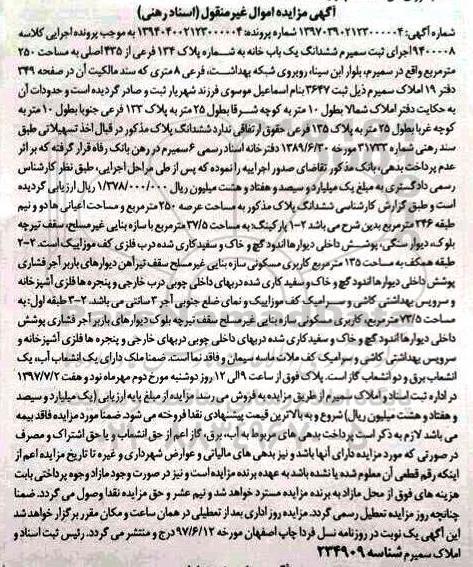 آگهی مزایده اموال غیر منقول (اسناد رهنی)
شماره آگهی: ۱۳۹۷۰۳۹۰۲۱۲۳۰۰۰۰۰۴ شماره پرونده: ۱۳۹۴۰۴۰۰۲۱۲۳۰۰۰۰۰۴ به موجب پرونده اجرایی کلاسه
۹۴۰۰۰۰۸ اجرای ثبت سمیرم ششدانگ یک باب خانه به شماره پلاک ۱۳۴ فرعی از ۴۳۵ اصلی به مساحت ۲۵۰
مترمربع واقع در سمیرم، بلوار ابن سینا، روبروی شبکه بهداشت، فرعی ۸ متری که سند مالکیت آن در صفحه ۳۴۹
دفتر ۱۹ املاک سمیرم ذیل ثبت ۳۶۴۷ بنام اسماعیل موسوی فرزند شهریار ثبت و صادر گردیده است و حدودات آن
به حکایت دفتر املاک شمالا بطول ۱۰ متر به کوچه شرقا بطول ۲۵ متر به پلاک ۱۳۳ فرعی جنوبا بطول ۱۰ متر به
کوچه غربا بطول ۲۵ متر به پلاک ۱۳۵ فرعی حقوق ارتفاقی ندارد ششدانگ پلاک مذکور در قبال اخذ تسهیلاتی طبق
سند رهنی شماره ۳۱۷۳۳ مورخه ۱۳۸۹/۶/۳۰ دفترخانه اسناد رسمی ۶ سمیرم در رهن بانک رفاه قرار گرفته که بر اثر
عدم پرداخت بدهی، بانک مذکور تقاضای صدور اجراییه را نموده که پس از طی مراحل اجرایی، طبق نظر کارشناس
رسمی دادگستری به مبلغ یک میلیارد و سیصد و هفتاد و هشت میلیون ریال ۱/۳۷۸/۰۰۰/۰۰۰ ریال ارزیابی گردیده
است و طبق گزارش کارشناسی ششدانگ پلاک مذکور به مساحت عرصه ۲۵۰ مترمربع و مساحت اعیانی ها دو و نیم
طبقه ۲۴۶ مترمربع بدین شرح می باشد ۱-۲ پارکینگ: به مساحت ۳۷/۵ مترمربع با سازه بنایی غیر مسلح، سقف تیرچه
بلوک، دیوار سنگی، پوشش داخلی دیوارها اندود گچ و خاک و سفیدکاری شده درب فلزی کف موزاییک است. ۲-۲
طبقه همکف به مساحت ۱۳۵ مترمربع کاربری مسکونی سازه بنایی غیر مسلح سقف تیرآهن دیوارهای باربر آجر فشاری
پوشش داخلی دیوارها اندود گچ و خاک و سفید کاری شده دربهای داخلی چوبی درب خارجی و پنجره ها فلزی آشپزخانه
و سرویس بهداشتی کاشی و سرامیک کف موزاییک و نمای ضلع جنوبی آجر ۳ سانتی می باشد. ۳-۲ طبقه اول: به
مساحت ۷۳/۵ مترمربع، کاربری مسکونی سازه بنایی غیر مسلح سقف تیرچه بلوک دیوارهای باربر آجر فشاری پوشش
داخلی دیوارها اندود گچ و خاک و سفیدکاری شده دربهای داخلی چوبی دربهای خارجی و پنجره ها فلزی آشپزخانه و
سرویس بهداشتی کاشی و سرامیک کف ملات ماسه سیمان و فاقد نما است. ضمنا ملک دارای یک انشعاب آب، یک
انشعاب برق و دو انشعاب گاز است. پلاک فوق از ساعت ۹ الی ۱۲ روز دوشنبه مورخ دوم مهرماه نود و هفت ۱۳۹۷/۷/۲
در اداره ثبت اسناد و املاک سمیرم از طریق مزایده به فروش می رسد مزایده از مبلغ پایه ارزیابی (یک میلیارد و سیصد
و هفتاد و هشت میلیون ریال) شروع و به بالاترین قیمت پیشنهادی نقدا فروخته می شود. ضمنا مورد مزایده فاقد بیمه
می باشد لازم به ذکر است پرداخت بدهی های مربوط به آب، برق، گاز اعم از حق انشعاب و یا حق اشتراک و مصرف
در صورتی که مورد مزایده دارای آنها باشد و نیز بدهی های مالیاتی و عوارض شهرداری و غیره تا تاریخ مزایده اعم از
اینکه رقم قطعی آن معلوم شده یا نشده باشد به عهده برنده مزایده است و نیز در صورت وجود مازاد وجوه پرداختی بابت
هزینه های فوق از محل مازاد به برنده مزایده مسترد خواهد شد و نیم عشر و حق مزایده نقدا وصول می گردد. ضمنا
چنانچه روز مزایده تعطیل رسمی گردد. مزایده روز اداری بعد از تعطیلی در همان ساعت و مکان مقرر برگزار خواهد شد
این آگهی یک نوبت در روزنامه نسل فردا چاپ اصفهان مورخه ۹۷/۶/۱۲ درج و منتشر می گردد. رئیس ثبت اسناد و
املاک سمیرم شناسه ۲۳۴۹۰۹